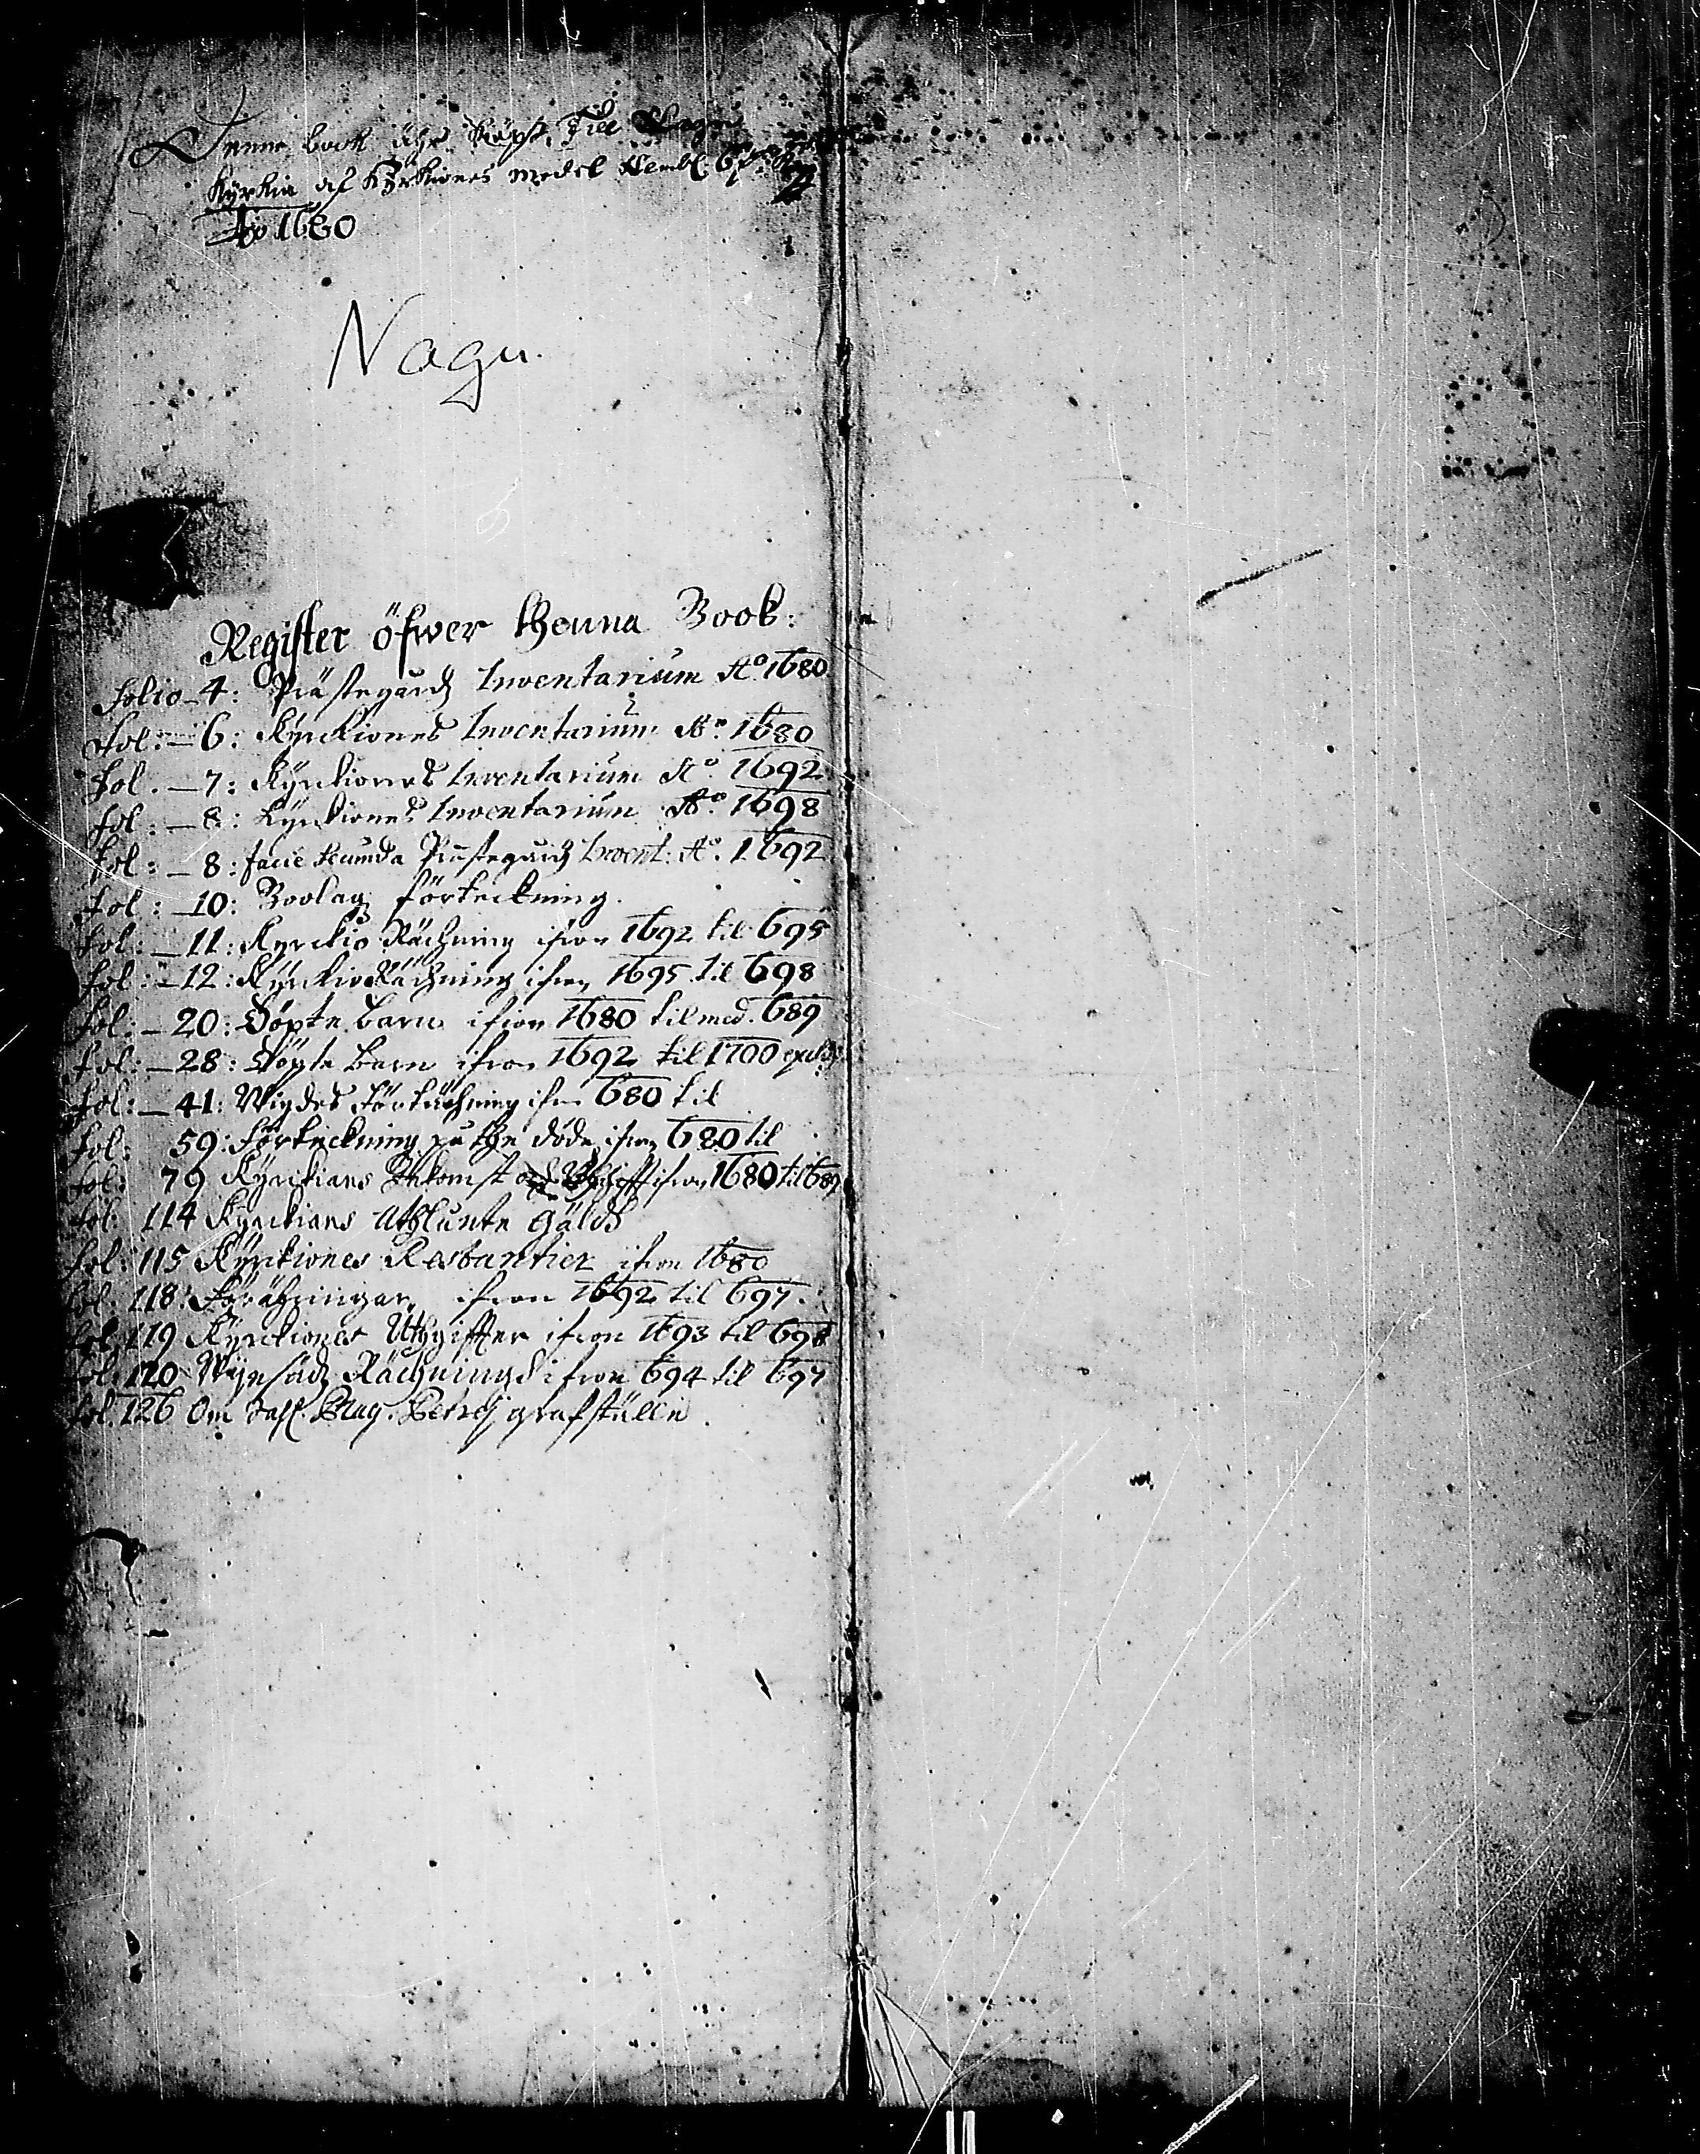 Denne book ähr köpt Till Nagu
Kyrkia af Kyrkiones medel
Ao 1680
Nagu.
Register öfwer thenna Book:
Folio - 4: Prästegårdz Inventarium Ao 1680
Fol: - 6: Kyrckiones Inventarium Ao. 1680
Fol. - 7: Kyrckiones Inventarium Ao. 1692
Fol: - 8: Kyrckiones Inventarium Ao. 1698
Fol: - 8: facie secunda Prästegårdz Invent: Ao. 1692
Fol: - 10: Boolag förteckning.
Fol: - 11: Kyrckio Rächning ifrån 1692 til 695
Fol: - 12: Kyrckio Rächning ifrån 1695 til 698
Fol: - 20: Döpte barn ifrån 1680 til med. 689
Fol: - 28: Döpte barn ifrån 1692 til 1700
Fol: - 41: Wigdes Förtächning ifrån 680 til
Fol: 59: Förteckning på the döda ifrån 680 til
Fol: 79 Kyrckians Inkomst och Uthgifft ifrån 1680 til 689
Fol: 114 Kyrckians Uthlante Gäldh
Fol: 115 Kyrckiones Restantier ifrån 1680
Fol: 118: Föräringar, ifrån 1692 til 697.
Fol: 119 Kyrckiones Uthgiffter ifrån 1693 til 698
Fol: 120 Wijnsädz Rächningh ifrån 694 til 697
Fol. 126 Om Sahl. Mag. Petrej grafställe.